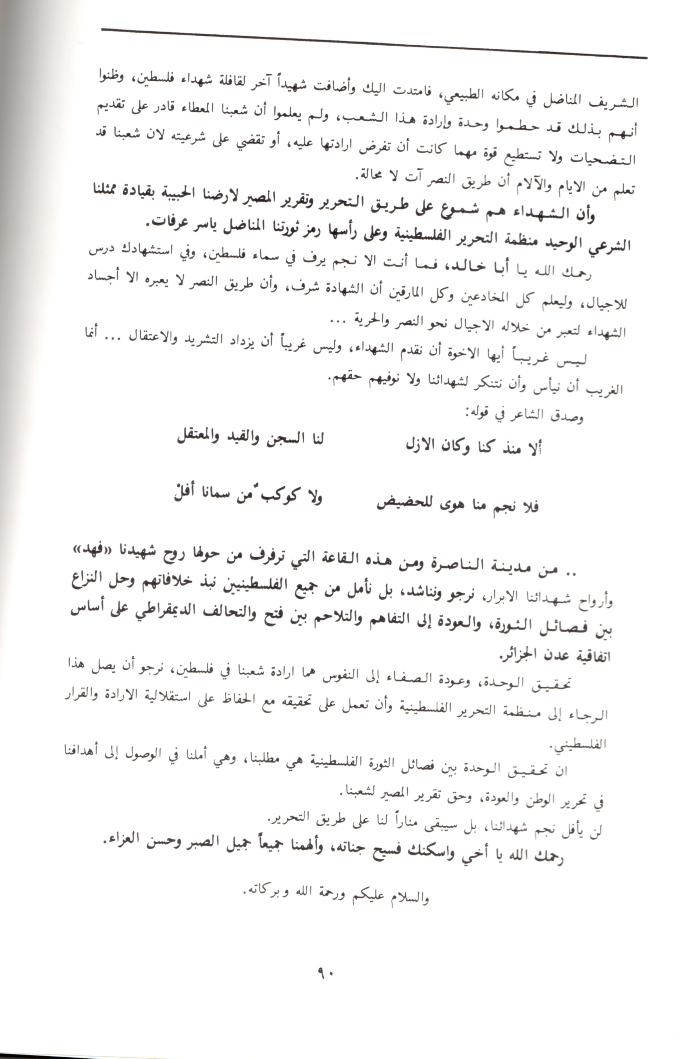 الشريف المناضل في مكانه الطبيعي، فامتدت اليك وأضافت شهيداً آخر لقافلة شهداء فلسطين، وظنوا
أنهم بذلك قد حطموا وحدة وإرادة هذا الشعب، ولم يعلموا أن شعبنا المعطاء قادر على تقديم
التضحيات ولا تستطيع قوة مهما كانت أن تفرض ارادتها عليه، أو تقضي على شرعيته لان شعبنا قد
تعلم من الايام والآلام أن طريق النصر آت لا محالة.
وأن الشهداء هم شموع على طريق التحرير وتقرير المصير لارضنا الحبيبة بقيادة ممثلنا
الشرعي الوحيد منظمة التحرير الفلسطينية وعلى رأسها رمز ثورتنا المناضل ياسر عرفات.
رحمك الله يا أبا خالد، فما أنت الا نجم يرف في سماء فلسطين، وفي استشهادك درس
للاجيال، وليعلم كل المخادعين وكل المارقين أن الشهادة شرف، وأن طريق النصر لا يعبره الا أجساد
الشهداء لتعبر من خلاله الاجيال نحو النصر والحرية ...
ليس غريباً أيها الاخوة أن نقدم الشهداء، وليس غريباً أن يزداد التشريد والاعتقال ... أنما
الغريب أن نيأس وأن نتنكر لشهدائنا ولا نوفيهم حقهم.
وصدق الشاعر في قوله:
ألا منذ كنا وكان الازل لنا السجن والقيد والمعتقل
فلا نجم منا هوى للحضيض ولا كوكبٌ من سمانا أفلْ
.. من مدينة الناصرة ومن هذه القاعة التي ترفرف من حولها روح شهيدنا «فهد»
وأرواح شهدائنا الابرار، نرجو ونناشد، بل نأمل من جميع الفلسطينيين نبذ خلافاتهم وحل النزاع
بين فصائل الثورة، والعودة إلى التفاهم والتلاحم بين فتح والتحالف الديمقراطي على أساس
اتفاقية عدن الجزائر.
تحقيق الوحدة، وعودة الصفاء إلى النفوس هما ارادة شعبنا في فلسطين، نرجو أن يصل هذا
الرجاء إلى منظمة التحرير الفلسطينية وأن تعمل على تحقيقه مع الحفاظ على استقلالية الارادة والقرار
الفلسطيني.
ان تحقيق الوحدة بين فصائل الثورة الفلسطينية هي مطلبنا، وهي أملنا في الوصول إلى أهدافنا
في تحرير الوطن والعودة، وحق تقرير المصير لشعبنا.
لن يأفل نجم شهدائنا، بل سيبقى مناراً لنا على طريق التحرير.
رحمك الله يا أخي واسكنك فسيح جناته، وألهمنا جميعاً جميل الصبر وحسن العزاء.
والسلام عليكم ورحمة الله وبركاته.
٩٠